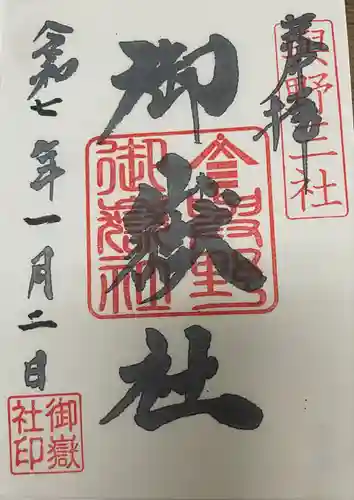 奉拝
與野三社
御嶽社
御嶽社
令和七年一月二日
御嶽
社印